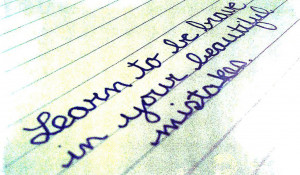 Learn to be brave
in your beautiful
mistakes.